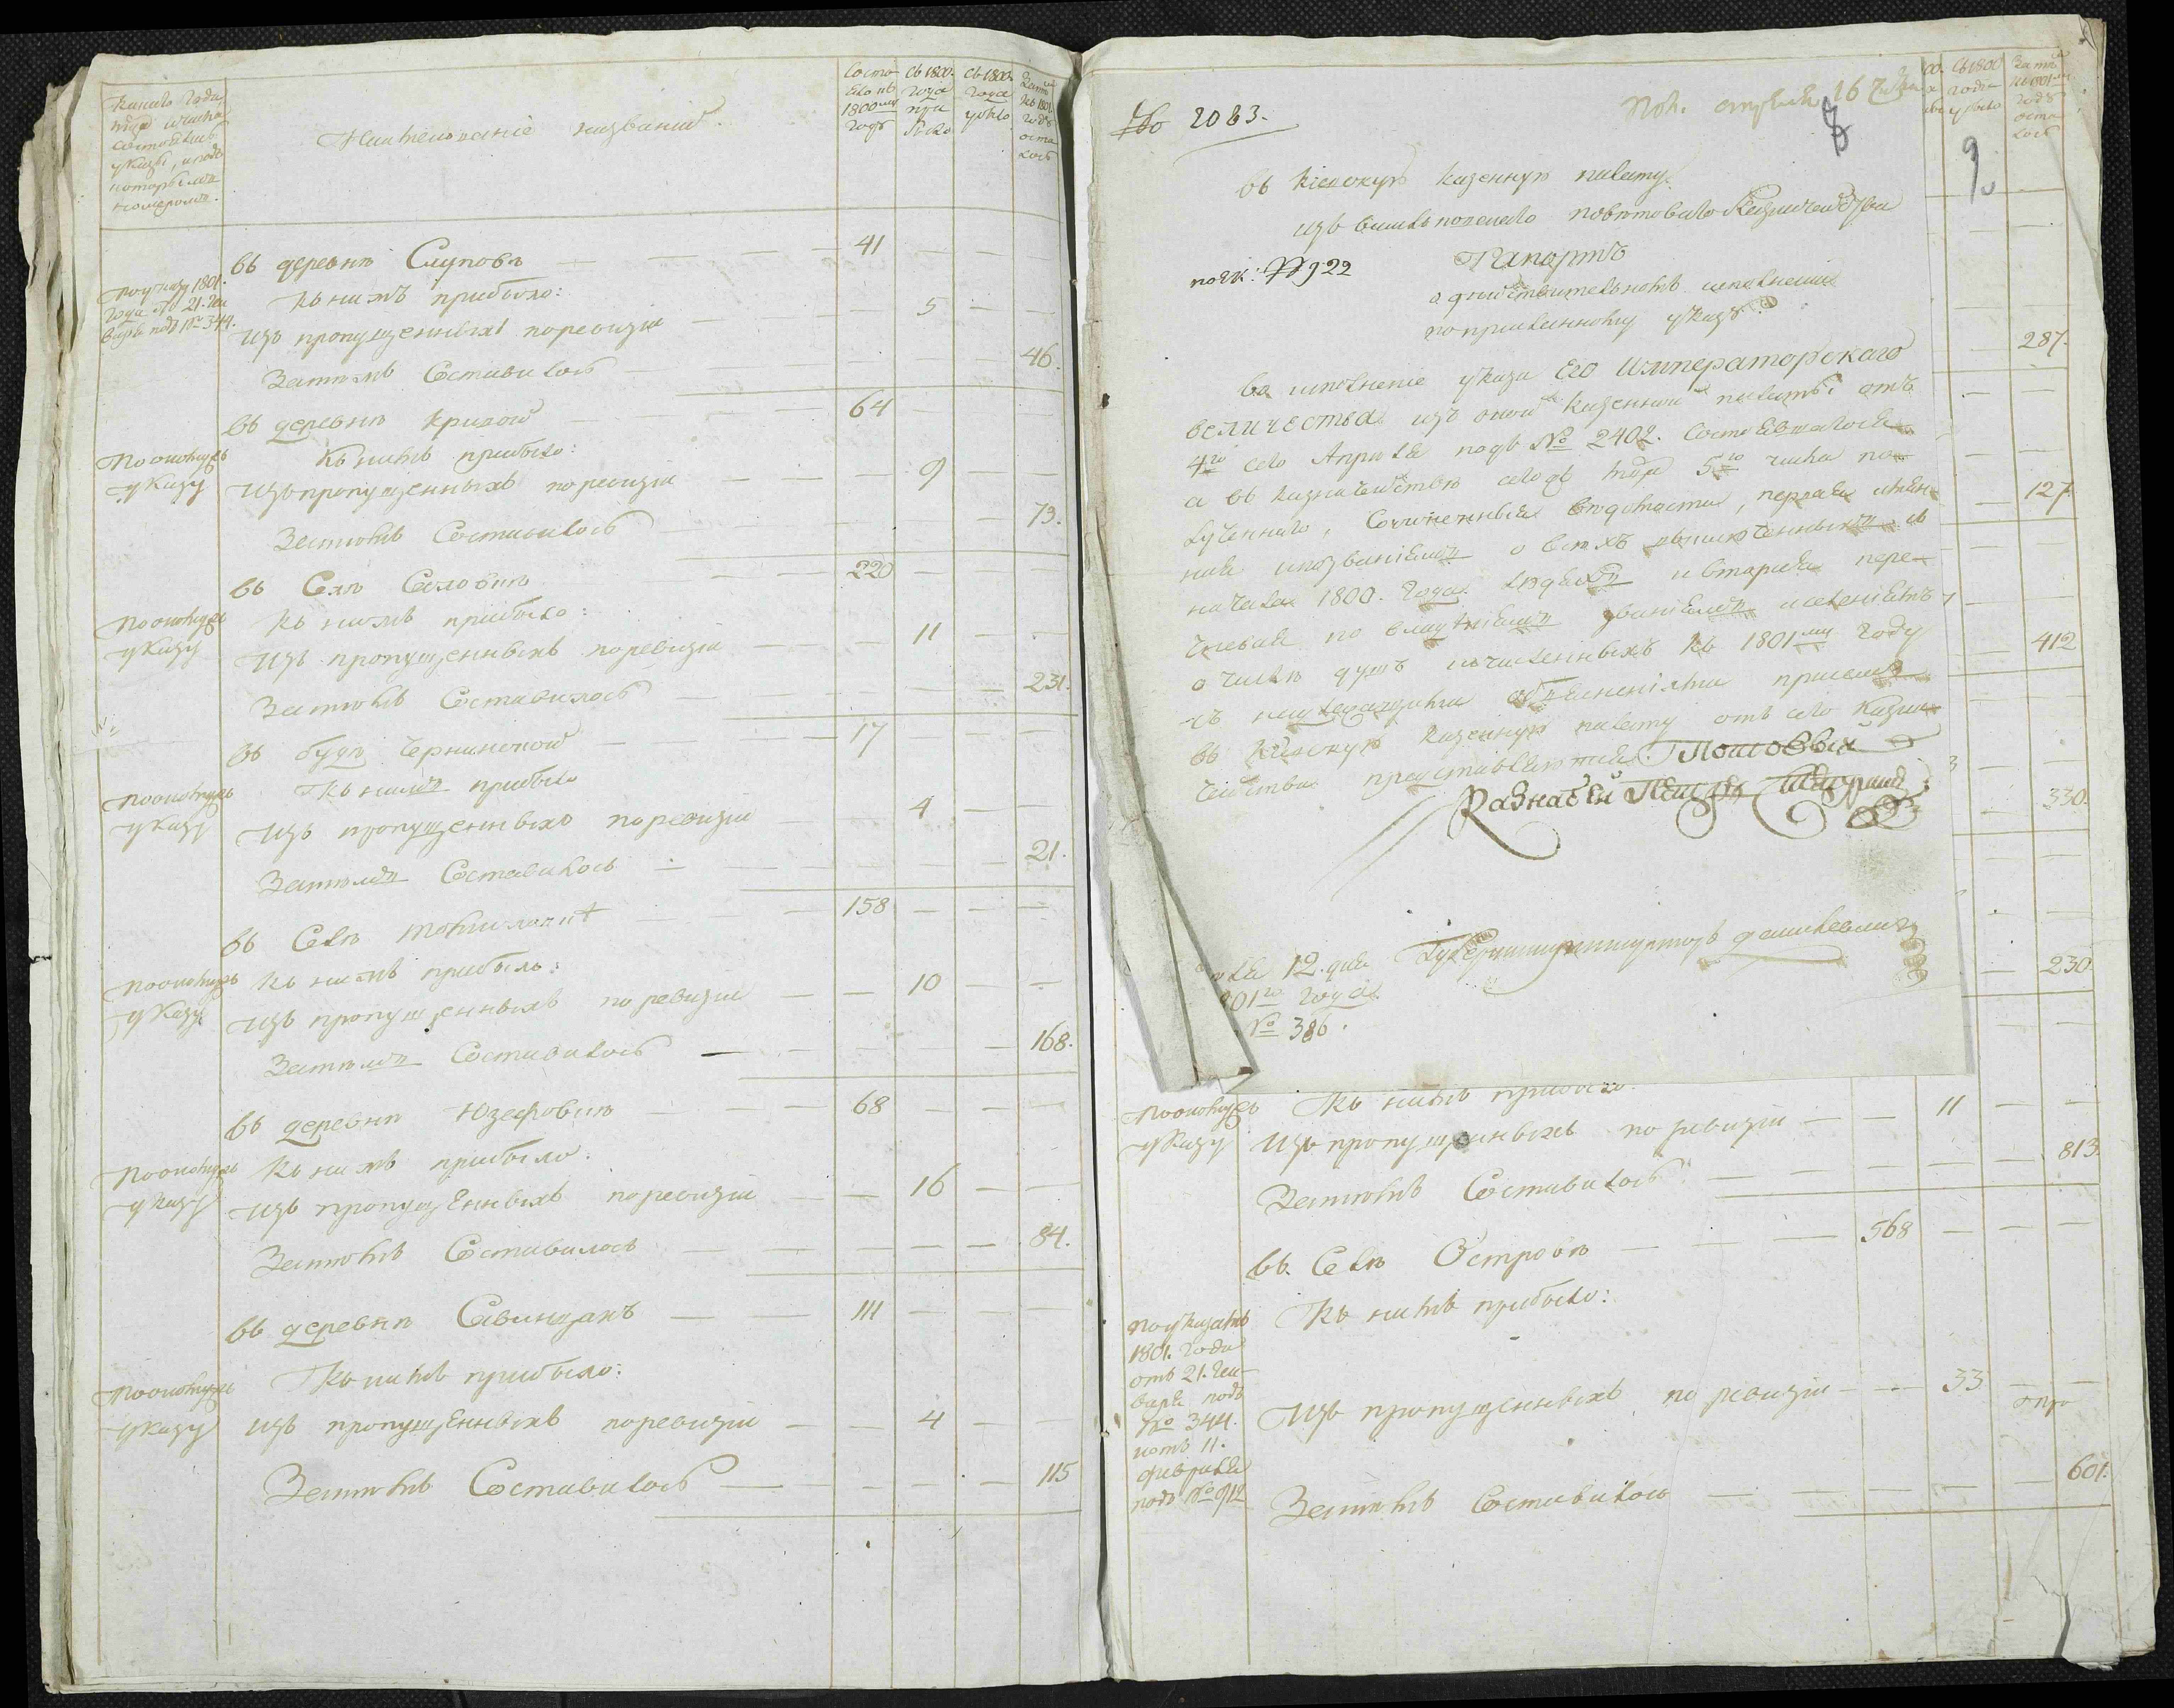 какого года
и числа
состоялись
указы, и подъ
которымъ
номеромъ.
Наименованіе названій.
Состо
яло въ
1800мъ
годѣ
Съ 1800.
года
при
было
Съ 1800.
года
убыло
Затѣмъ
къ 1801му
годѣ
оста
лось
въ деревнѣ Слуповѣ 41
По указу 1801.
года 21. ген
варя подъ № 344.
къ нимъ прибыло:
изъ пропущенныхъ по ревизіи 5
Затѣмъ Составилось 46.
въ деревнѣ Кривой 64
По оному жъ
указу
Къ нимъ прибыло:
Изъ пропущенныхъ по ревизіи 9
Затѣмъ Составилось 73.
въ Селѣ 220
По оному жъ
указу
къ нимъ прибыло:
Изъ пропущенныхъ по ревизіи 11
Затѣмъ Составилось 231.
въ будѣ 17
По оному жъ
указу
Къ нимъ прибыло
Изъ пропущенныхъ по ревизіи 4
Затѣмъ Составилось 21.
въ Селѣ 158
По оному жъ
указу
къ нимъ прибыло:
Изъ пропущенныхъ по ревизіи 10
Затѣмъ Составилось 168.
въ деревнѣ Юзефовкѣ 68
По оному жъ
указу
Къ нимъ прибыло:
изъ пропущенныхъ по ревизіи 16
Затѣмъ Составилось 84.
въ деревнѣ 111
По оному жъ
указу
Къ нимъ прибыло:
изъ пропущенныхъ по ревизіи 4
Затѣмъ Составилось 115
№ 2083.
Пол. апрѣля 16
8
въ Кіевскую казенную палату.
изъ повѣтоваго Казначейства
№ 922
Рапортъ
о дѣйствительномъ исполненіи
по присланному указу.
Во исполненіе указа Его Императорскаго
величества изъ оной казенной палаты отъ
4го сего Апрѣля подъ № 2402. Состоявшагося
а въ казначействѣ сего жъ 5го числа по
лученнаго, Сочиненныя вѣдомости, первая имян
ная о всѣхъ съ
начала 1800. года людяхъ и вторая пере
чневая по званіямъ и селеніямъ
о числѣ душъ исчисленныхъ къ 1801му году
съ надлежащими объясненіями присемъ
въ Кіевскую казенную палату отъ сего Казна
чейства представляются.
Казначей
апрѣля 12. дня
1801го года.
№ 386.
Съ 1800
года
убыло
Затѣмъ
къ 1801му
годѣ
оста
лось
9
287.
127.
412
330.
230
По оному жъ
указу
Къ нимъ прибыло.
Изъ пропущенныхъ по ревизіи 11
Затѣмъ Составилось 813.
въ Селѣ Островѣ 568
По указамъ
1801. года
отъ 21. ген
варя подъ
№ 344.
и отъ 11.
февраля
подъ № 912
Къ нимъ прибыло:
Изъ пропущенныхъ по ревизіи 33
Затѣмъ Составилось 601.